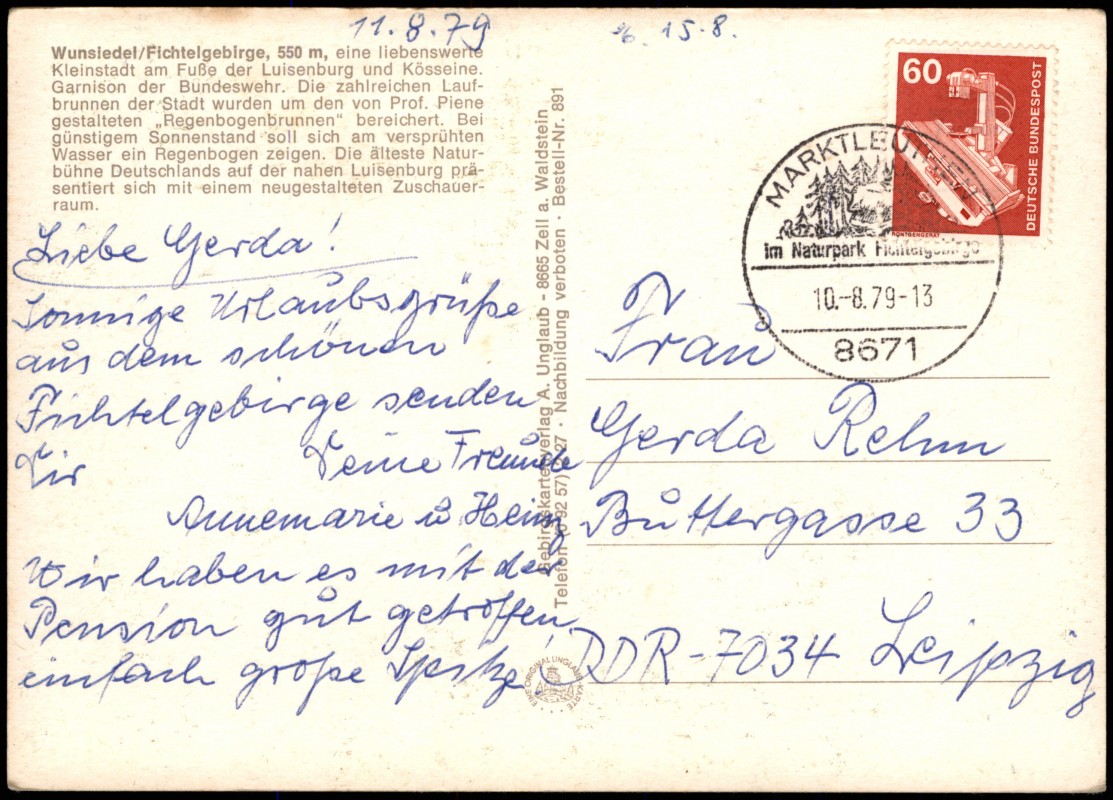 11.8.79
15.8.
Wunsiedel/Fichtelgebirge, 550 m, eine liebenswerte
Kleinstadt am Fuße der Luisenburg und Kösseine.
Garnison der Bundeswehr. Die zahlreichen Lauf-
brunnen der Stadt wurden um den von Prof. Piene
gestalteten „Regenbogenbrunnen" bereichert. Bei
günstigem Sonnenstand soll sich am versprühten
Wasser ein Regenbogen zeigen. Die älteste Natur-
bühne Deutschlands auf der nahen Luisenburg prä-
sentiert sich mit einem neugestalteten Zuschauer-
raum.
Liebe Gerda!
Sonnige Urlaubsgrüße
aus dem schönen
Fichtelgebirge senden
Dir Deine Freunde
Annemarie u Heinz
Wir haben es mit der
Pension gut getroffen
einfach große Spitze
Gebirgskartenverlag A. Unglaub - 8665 Zell a. Waldstein
Nachbildung verboten · Bestell-Nr. 891
60
DEUTSCHE BUNDESPOST
RÖNTGENGERÄT
im Naturpark Fichtelgebirge
10.-8.79-13
8671
Frau
Gerda Rehm
Buttergasse 33
DDR-7034 Leipzig
EINE ORIGINAL UNGLAUB-KARTE